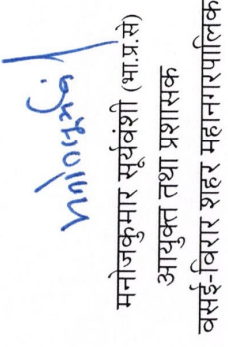 मनोजकुमार सूर्यवंशी (भा.प्र.से)
आयुक्त तथा प्रशासक
वसई-विरार शहर महानगरपालिक